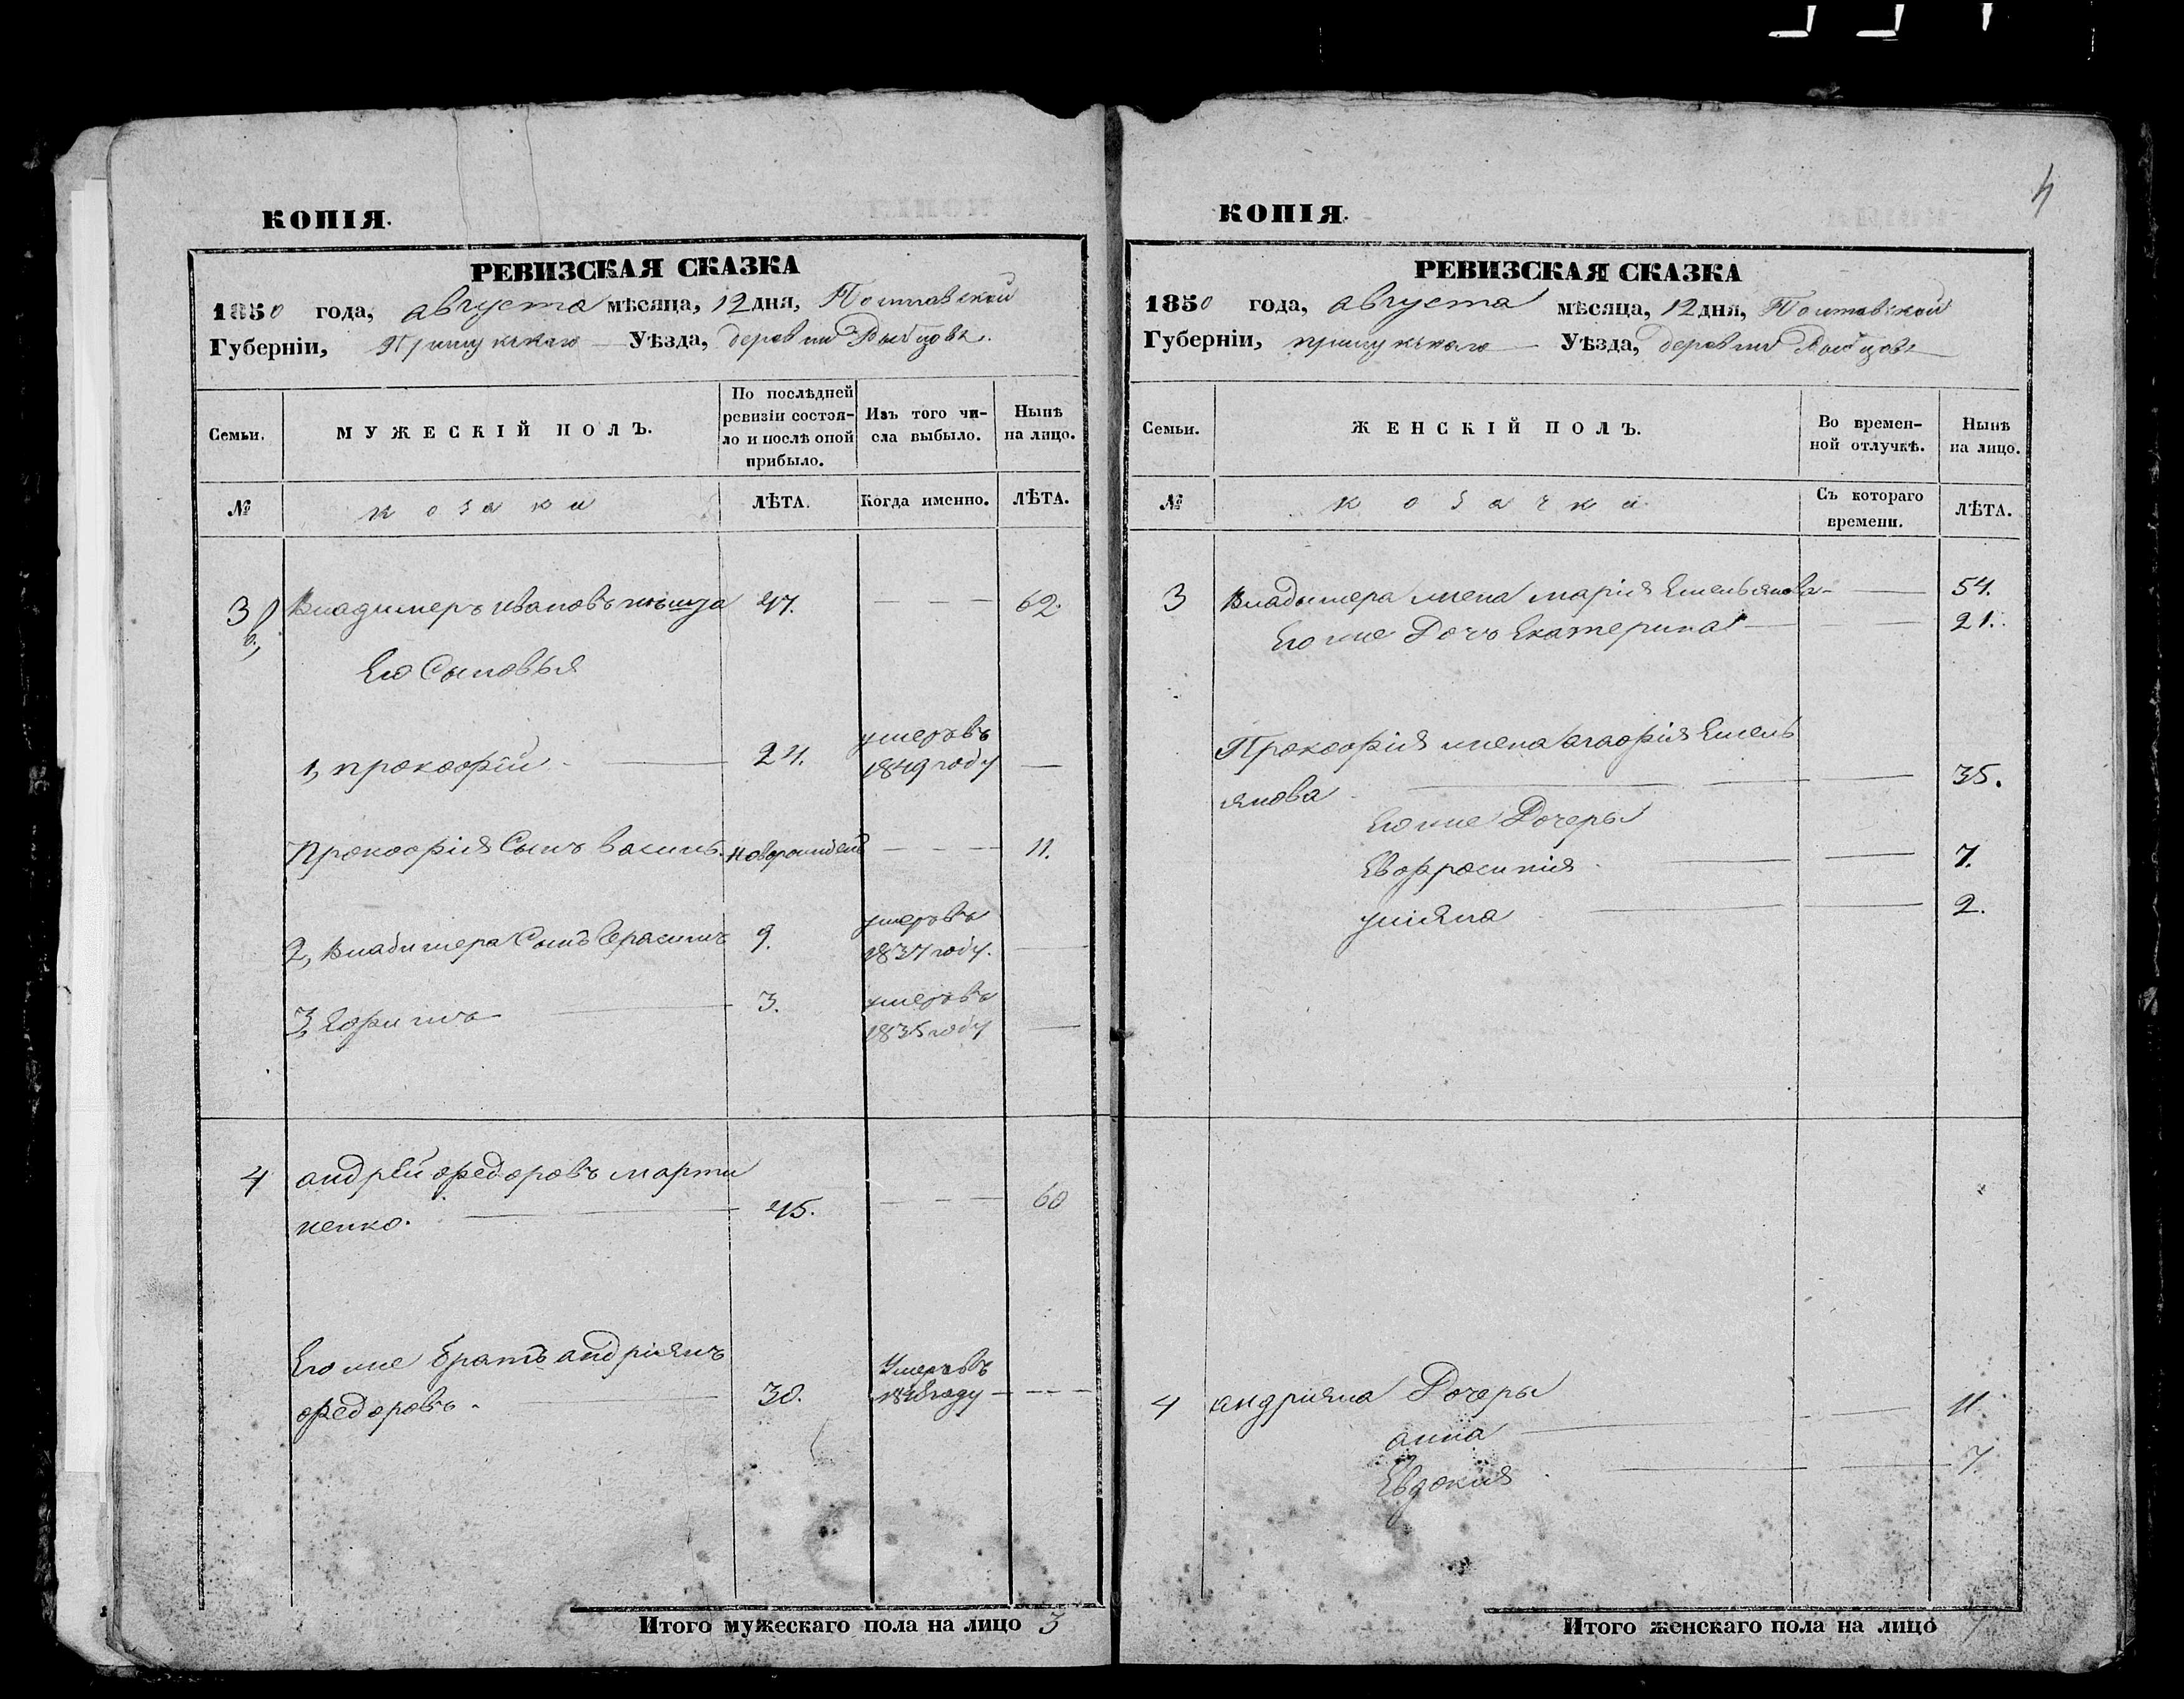 КОПІЯ.
РЕВИЗСКАЯ СКАЗКА
1850 года, августа мѣсяца, 12 дня, Полтавской
Губерніи, Прилукскаго Уѣзда, деревни Рыбцовъ.
Семьи.
МУЖЕСКІЙ ПОЛЪ.
По послѣдней ревизіи состоя-
ло и послѣ оной прибыло.
Изъ того чи-
сла выбыло.
Нынѣ
на лицо.
№
козаки
ЛѢТА.
Когда именно.
ЛѢТА.
3 Владимеръ Ивановъ 47. — — — 62.
Его Сыновья
1, прокофій — 24. умеръ въ 1849 году —
Прокофія Сынъ василь. новорожден — — — 11.
2, Владимера Сынъ Герасимъ 9. умеръ въ 1837 году. —
3, Ефимъ — 3. умеръ въ 1835 году —
4 андрей федоровъ марти
ненко. — 45. — — — 60
Его же братъ андріянъ
федоровъ. — 30. Умеръ въ году — — —
Итого мужескаго пола на лицо 3
4
КОПІЯ.
РЕВИЗСКАЯ СКАЗКА
1850 года, августа мѣсяца, 12 дня, Полтавской
Губерніи, прилукскаго — Уѣзда, деревни Рыбцовъ
Семьи.
ЖЕНСКІЙ ПОЛЪ.
Во времен-
ной отлучкѣ.
Нынѣ
на лицо.
№
козачки
Съ котораго
времени.
ЛѢТА.
3 Владимера жена марія Емельянова — 54.
Его же Дочь Екатерина — 21.
Прокофія жена агафія Емель
янова — 35.
Его же Дочеры
Евфросинія — 7.
уліяна — 2.
4 андріяна Дочеры
анна — 11
Евдокия — 7.
Итого женскаго пола на лицо 7